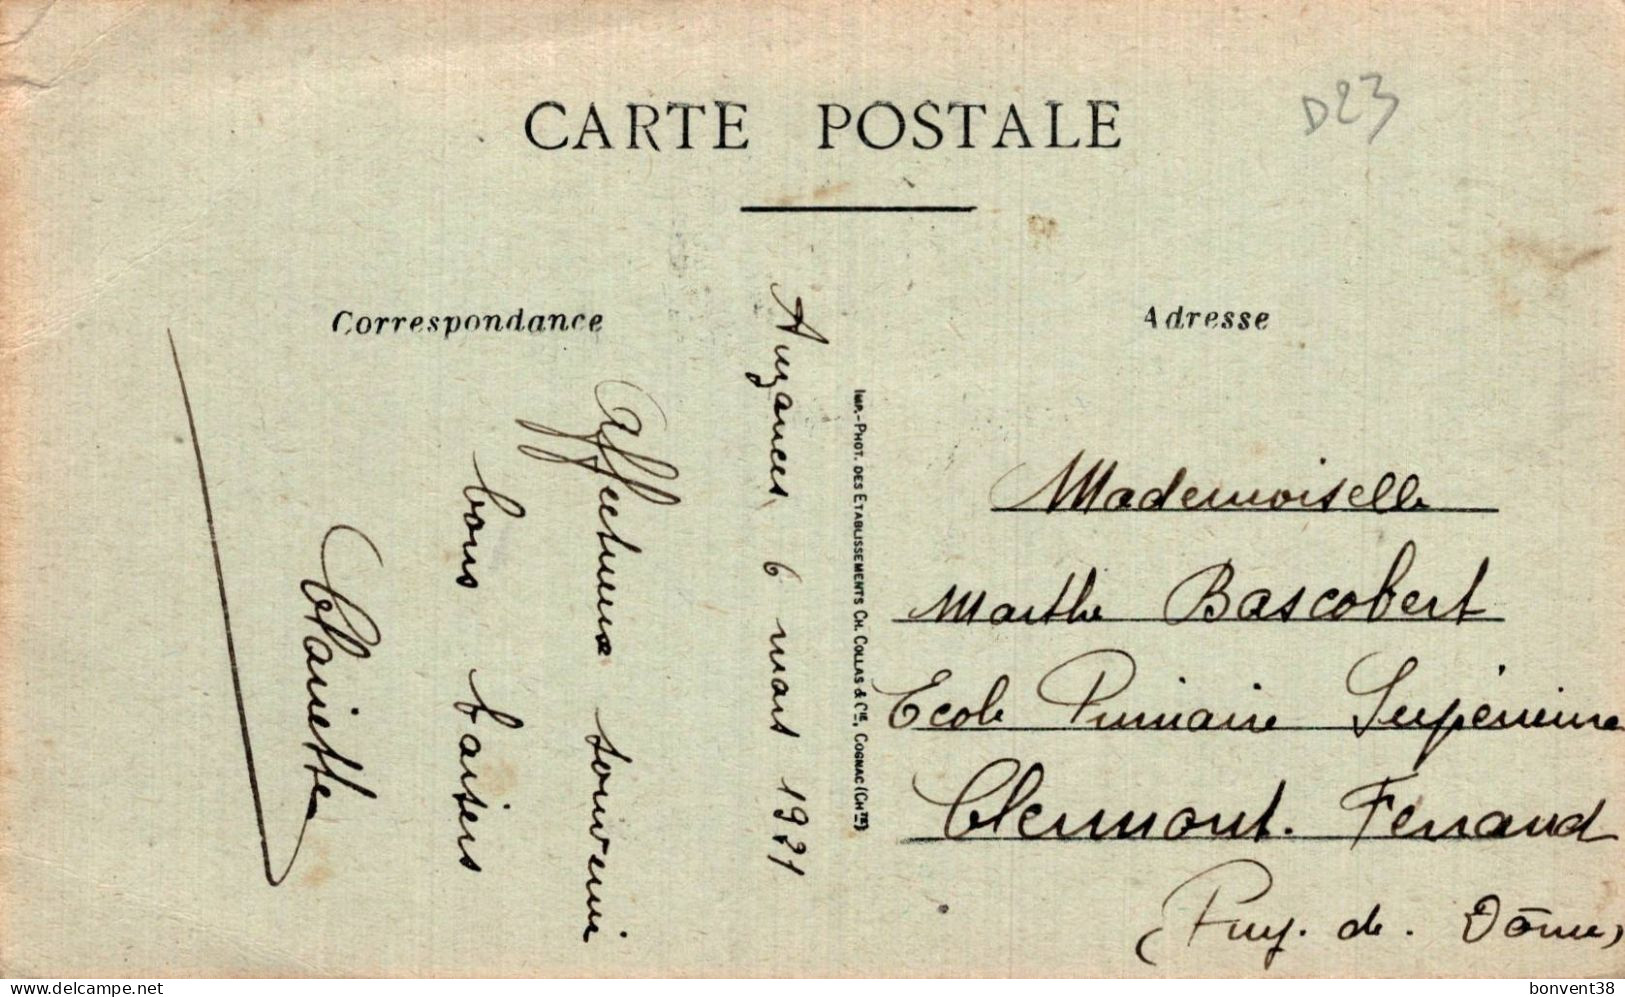 CARTE POSTALE
D23
Correspondance
Adresse
Auzances 6 mars 1921
Affectueux souvenir
bons baisers
Clairette
IMP.-PHOT. DES ETABLISSEMENTS CH. COLLAS & Cie, COGNAC (Chte)
Mademoiselle
Marthe Bascobert
Ecole Primaire Supérieure
Clermont. Ferrand
(Puy. de. Dôme)
delcampe.net
bonvent38